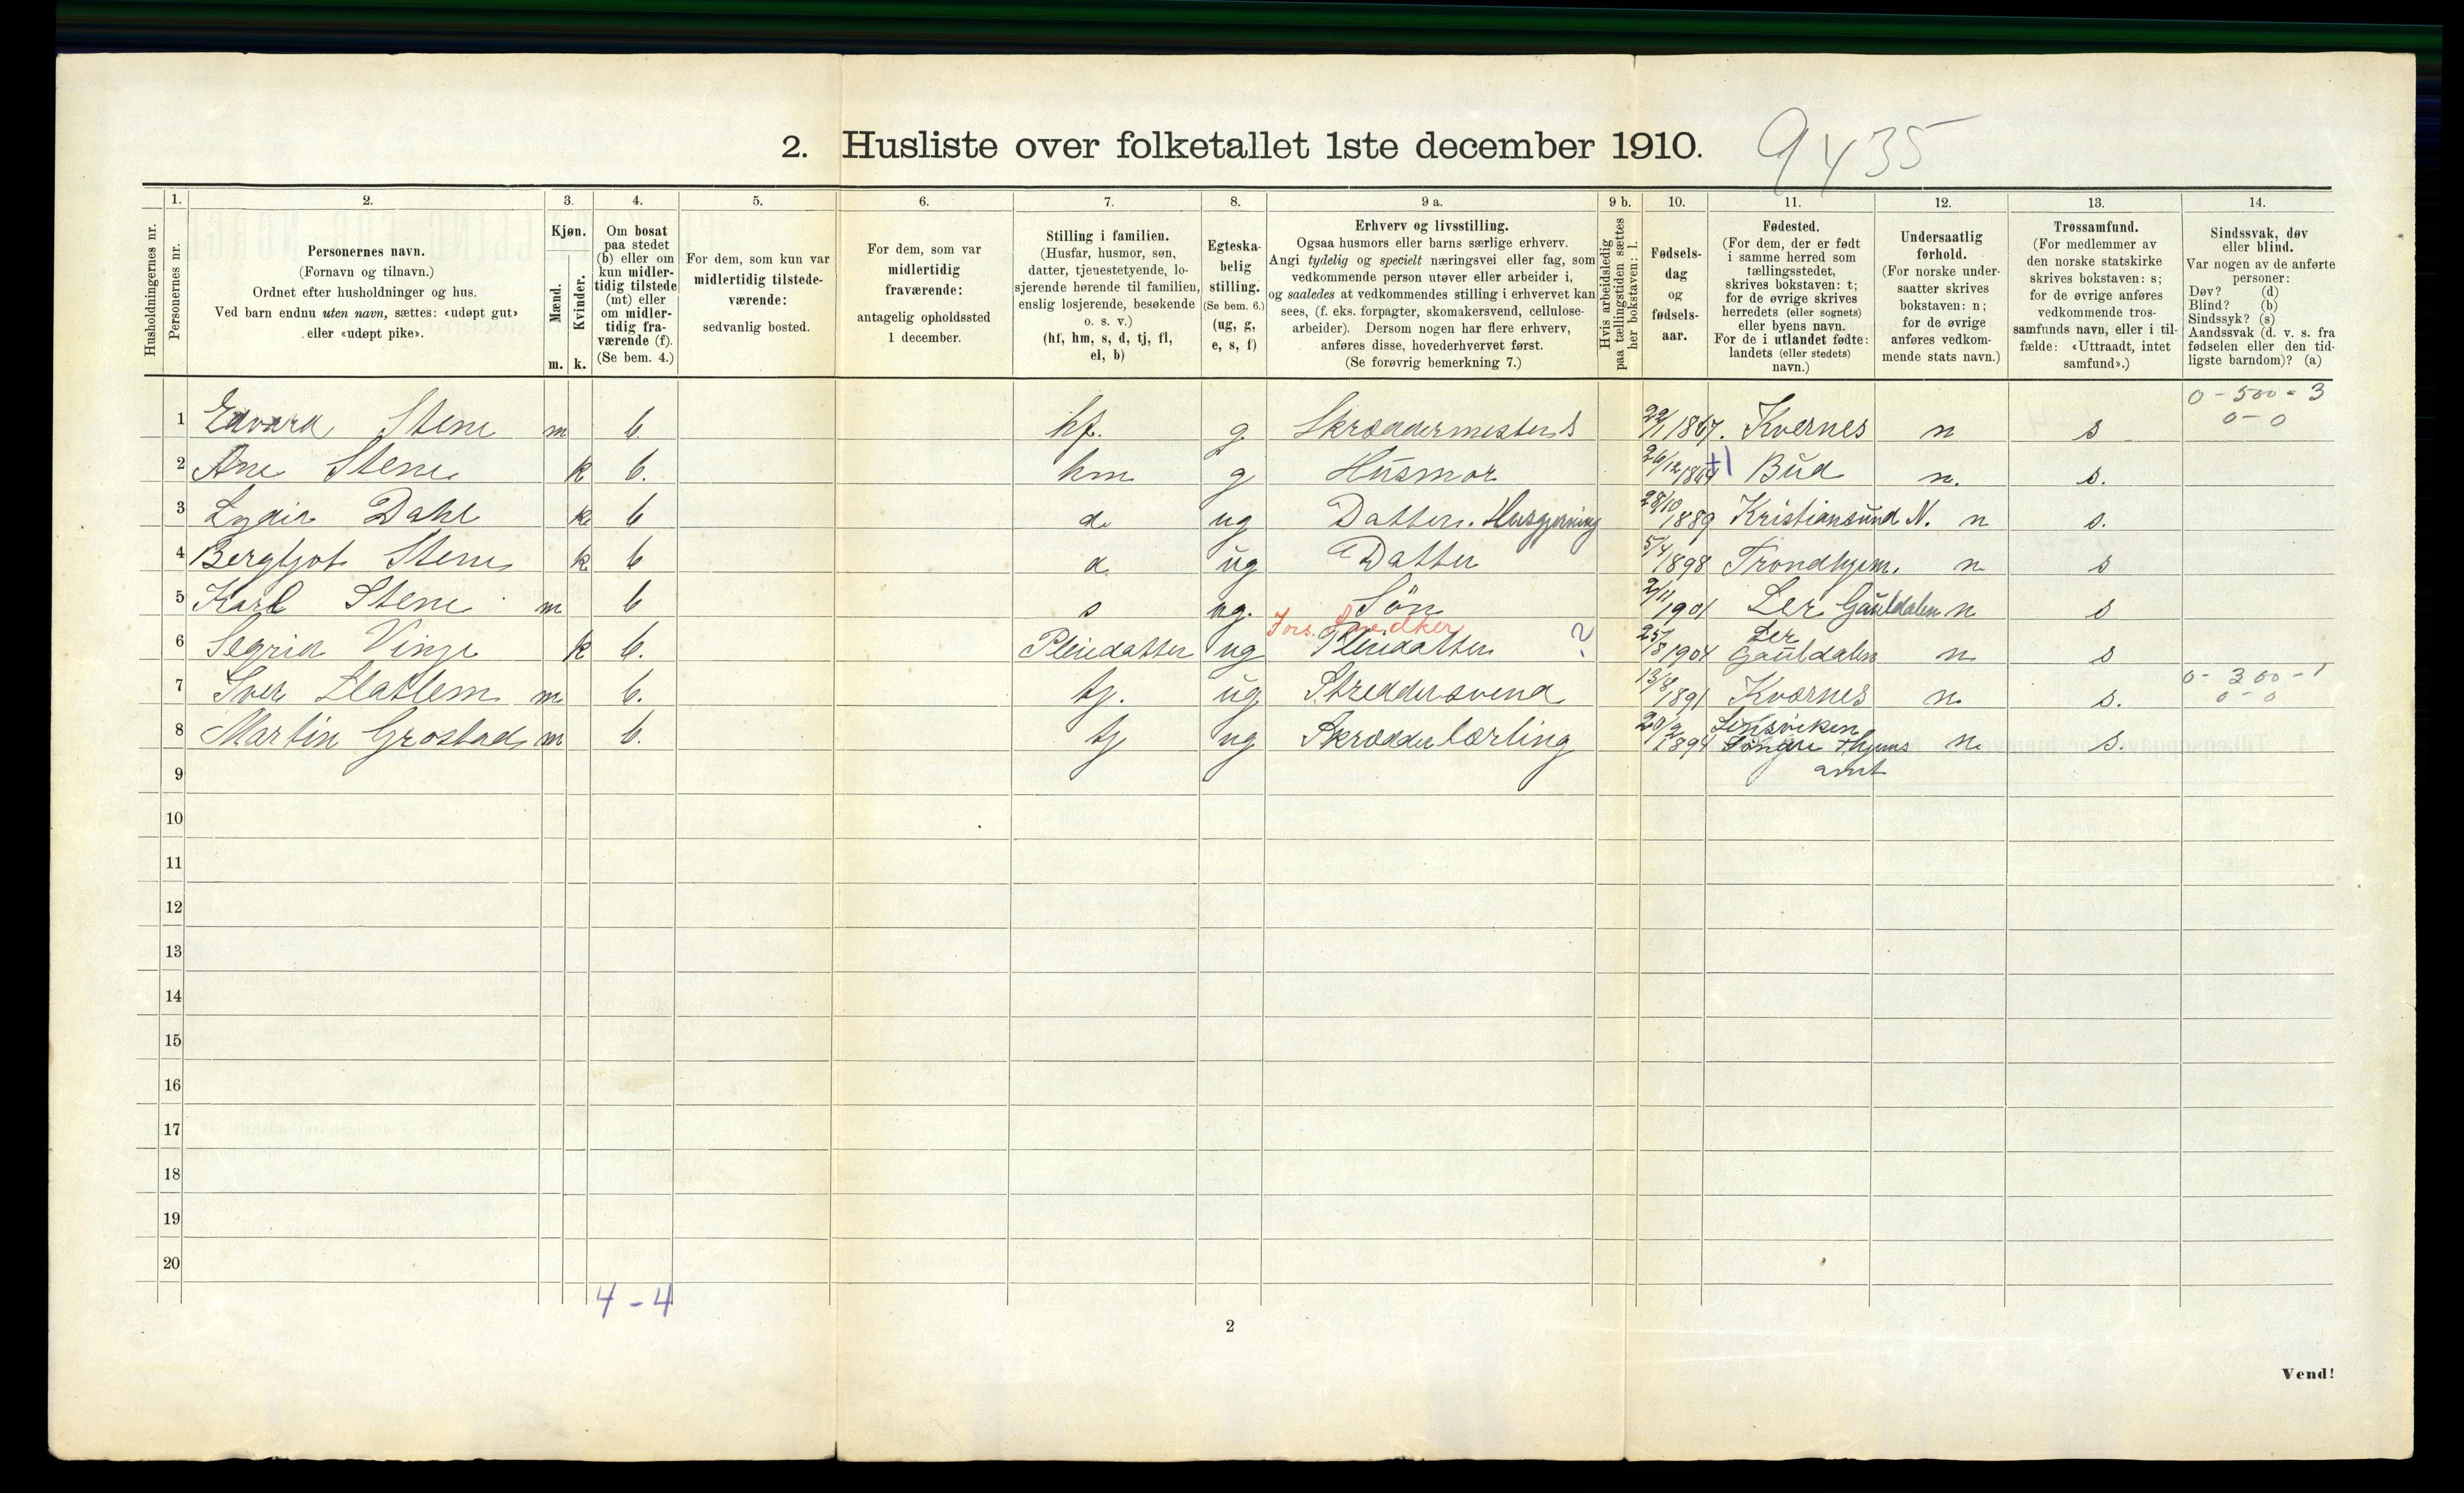 2. Husliste over folketallet 1ste december 1910. 9435
1. 2. 3. 4. 5. 6. 7. 8. 9 a. 9 b. 10. 11. 12. 13. 14.
Husholdningernes nr.
Personernes nr.
Personernes navn.
(Fornavn og tilnavn.)
Ordnet efter husholdninger og hus.
Ved barn endnu uten navn, sættes: «udøpt gut»
eller «udøpt pike».
Kjøn.
Mænd.
Kvinder.
m. k.
Om bosat
paa stedet
(b) eller om
kun midler-
tidig tilstede
(mt) eller
om midler-
tidig fra-
værende (f).
(Se bem. 4.)
For dem, som kun var
midlertidig tilstede-
værende:
sedvanlig bosted.
For dem, som var
midlertidig
fraværende:
antagelig opholdssted
1 december.
Stilling i familien.
(Husfar, husmor, søn,
datter, tjenestetyende, lo-
sjerende hørende til familien,
enslig losjerende, besøkende
o. s. v.)
(hf, hm, s, d, tj, fl,
el, b)
Egteska-
belig
stilling.
(Se bem. 6.)
(ug, g,
e, s, f)
Erhverv og livsstilling.
Ogsaa husmors eller barns særlige erhverv.
Angi tydelig og specielt næringsvei eller fag, som
vedkommende person utøver eller arbeider i,
og saaledes at vedkommendes stilling i erhvervet kan
sees, (f. eks. forpagter, skomakersvend, cellulose-
arbeider). Dersom nogen har flere erhverv,
anføres disse, hovederhvervet først.
(Se forøvrig bemerkning 7.)
Hvis arbeidsledig
paa tællingstiden sættes
her bokstaven: l.
Fødsels-
dag
og
fødsels-
aar.
Fødested.
(For dem, der er født
i samme herred som
tællingsstedet,
skrives bokstaven: t;
for de øvrige skrives
herredets (eller sognets)
eller byens navn.
For de i utlandet fødte:
landets (eller stedets)
navn.)
Undersaatlig
forhold.
(For norske under-
saatter skrives
bokstaven: n;
for de øvrige
anføres vedkom-
mende stats navn.)
Trossamfund.
(For medlemmer av
den norske statskirke
skrives bokstaven: s;
for de øvrige anføres
vedkommende tros-
samfunds navn, eller i til-
fælde: «Uttraadt, intet
samfund».)
Sindssvak, døv
eller blind.
Var nogen av de anførte
personer:
Døv? (d)
Blind? (b)
Sindssyk? (s)
Aandssvak (d. v. s. fra
fødselen eller den tid-
ligste barndom)? (a)
0 - 500 - 3
0 - 0
1 Edvard Stene m b. hf. g Skræddermester S 22/1 1867. Kvernes n s
2 Ane Stene k b. hm g Husmor 26/12 1864 +1 Bud n. s.
3 Lydia Dahl k b d. ug Datter. Husgjerning 28/10 1889 Kristiansund N. n s.
4 Bergljot Stene k b d ug Datter 5/4 1898 Trondhjem. n s
5 Karl Stene m b s ug. Sön 2/11 1901 Ler Gauldalen n s
Fors. Snedker
6 Segrid Vinje k b. Pleiedatter ug Pleiedatter ? 25/8 1904 Ler Gauldalen n s
0 - 300 - 1
0 - 0
7 Iver Hatlem m b. tj. ug Skreddersvend 13/8 1891 Kværnes n. s.
8 Martin Grostad m b. tj ug Skrædderlærling 20/2 1894 Lensviken Söndre Thjems n. s.
9 amt
10
11
12
13
14
15
16
17
18
19
20
4 - 4
2
Vend!